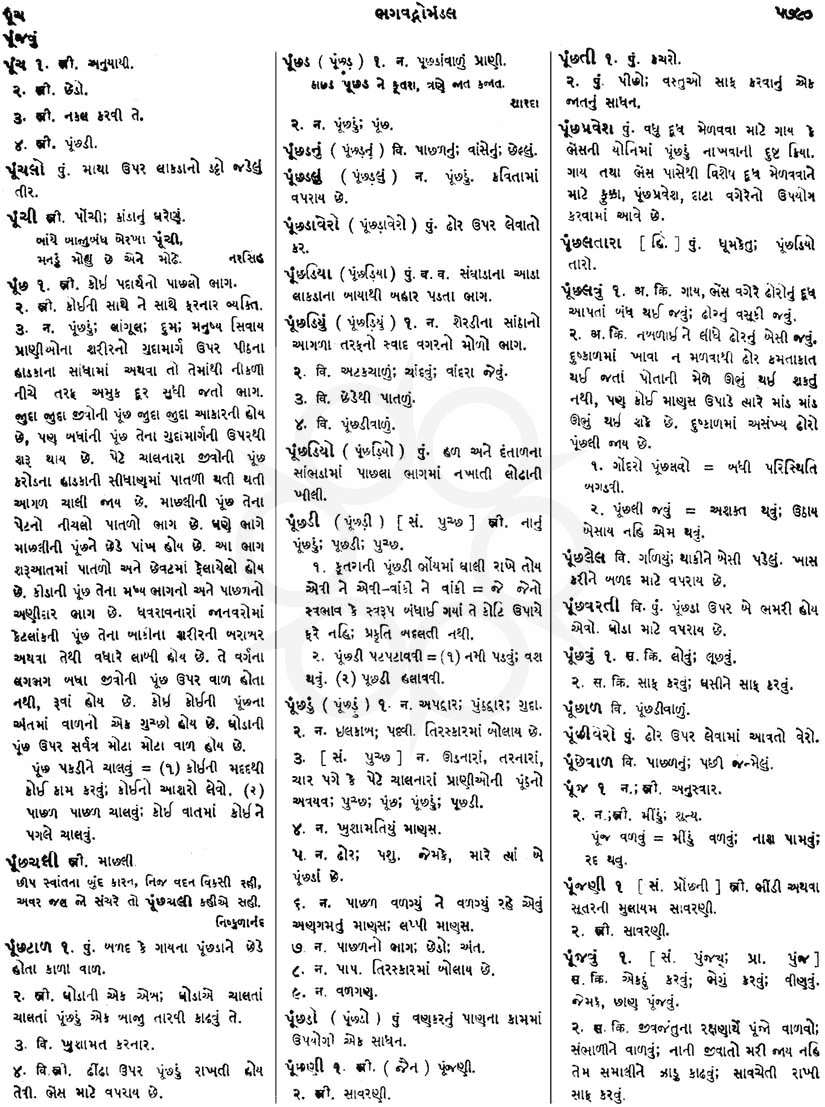 પૂંચ
ભગવદ્ગોમંડલ
૫૭૯૦
પૂંજવું
પૂંચ ૧. સ્ત્રી. અનુયાયી.
૨. સ્ત્રી. છેડો.
૩. સ્ત્રી. નકલ કરવી તે.
૪. સ્ત્રી. પૂંછડી.
પૂંચલો પું. માથા ઉપર લાકડાનો દટ્ટો જડેલું
તીર.
પૂંચી સ્ત્રી. પોંચી; કાંડાનું ઘરેણું.
બાંયે બાજુબંધ બેરખા પૂંચી,
મનડું મોહ્યું છે એને મોઢે. નરસિંહ
પૂંછ ૧. સ્ત્રી. કોઈ પદાર્થનો પાછલો ભાગ.
૨. સ્ત્રી. કોઈની સાથે ને સાથે ફરનાર વ્યક્તિ.
૩. ન. પૂંછડું; લાંગૂલ; દુમ; મનુષ્ય સિવાય
પ્રાણીઓના શરીરનો ગુદામાર્ગ ઉપર પીઠના
હાડકાના સાંધામાં અથવા તો તેમાંથી નીકળી
નીચે તરફ અમુક દૂર સુધી જતો ભાગ.
જુદા જુદા જીવોની પૂંછ જુદા જુદા આકારની હોય
છે, પણ બધાંની પૂંછ તેના ગુદામાર્ગની ઉપરથી
શરૂ થાય છે. પેટે ચાલનારા જીવોની પૂંછ
કરોડના હાડકાની સીધાણમાં પાતળી થતી થતી
આગળ ચાલી જાય છે. માછલીની પૂંછ તેના
પેટનો નીચલો પાતળો ભાગ છે. ઘણે ભાગે
માછલીની પૂંછને છેડે પાંખ હોય છે. આ ભાગ
શરૂઆતમાં પાતળો અને છેવટમાં ફેલાયેલો હોય
છે. કીડાની પૂંછ તેના મધ્ય ભાગનો અને પાછળનો
અણીદાર ભાગ છે. ધવરાવનારાં જાનવરોમાં
કેટલાંકની પૂંછ તેના બાકીના શરીરની બરાબર
અથવા તેથી વધારે લાંબી હોય છે. તે વર્ગના
લગભગ બધા જીવોની પૂંછ ઉપર વાળ હોતા
નથી, રૂવાં હોય છે. કોઈ કોઈની પૂંછના
અંતમાં વાળનો એક ગુચ્છો હોય છે. ઘોડાની
પૂંછ ઉપર સર્વત્ર મોટા મોટા વાળ હોય છે.
પૂંછ પકડીને ચાલવું = (૧) કોઈની મદદથી
કોઈ કામ કરવું; કોઈનો આશરો લેવો. (૨)
પાછળ પાછળ ચાલવું; કોઈ વાતમાં કોઈને
પગલે ચાલવું.
પૂંછચલી સ્ત્રી. માછલી.
છીપ સ્વાંતના બુંદ કારન, નિજ વદન વિકસી રહી,
અવર જલ જો સંચરે તો પૂંછચલી કહીએ સહી.
નિષ્કુળાનંદ
પૂંછટાળ ૧. પું. બળદ કે ગાયના પૂંછડાને છેડે
હોતા કાળા વાળ.
૨. સ્ત્રી. ઘોડાની એક એબ; ઘોડાએ ચાલતાં
ચાલતાં પૂંછડું એક બાજુ તારવી કાઢવું તે.
૩. વિ. ખુશામત કરનાર.
૪. વિ.સ્ત્રી. ઢીંઢા ઉપર પૂંછડું રાખતી હોય
તેવી. ભેંસ માટે વપરાય છે.
પૂંછડ ( પૂંછ્ડ ) ૧. ન. પૂછડાંવાળું પ્રાણી.
કાછડ પૂંછડ ને કૂતરા, ત્રણે જાત કજાત.
શારદા
૨. ન. પૂંછડું; પૂંછ.
પૂંછડનું ( પૂંછ્ડનું ) વિ. પાછળનું; વાંસેનું; છેલ્લું.
પૂંછડલું ( પૂંછ્ડલું ) ન. પૂંછડું. કવિતામાં
વપરાય છે.
પૂંછડાવેરો ( પૂંછ્ડાવેરો ) પું. ઢોર ઉપર લેવાતો
કર.
પૂંછડિયા ( પૂંછ્ડિયા ) પું. બ. વ. સંઘાડાના આડા
લાકડાના બાયાથી બહાર પડતા ભાગ.
પૂંછડિયું ( પૂંછ્ડિયું ) ૧. ન. શેરડીના સાંઠાનો
આગળા તરફનો સ્વાદ વગરનો મોળો ભાગ.
૨. વિ. અટકચાળું; ચાંદવું; વાંદરા જેવું.
૩. વિ. છેડેથી પાતળું.
૪. વિ. પૂંછડીવાળું.
પૂંછડિયો ( પૂંછ્ડિયો ) પું. હળ અને દંતાળના
સાંભડામાં પાછલા ભાગમાં નખાતી લોઢાની
ખીલી.
પૂંછડી ( પૂંછ્ડી ) [ સં. પુચ્છ ] સ્ત્રી. નાનું
પૂંછડું; પૂછડી; પુચ્છ.
૧. કૂતરાની પૂંછડી ભોંયમાં ઘાલી રાખે તોય
એવી ને એવી-વાંકી ને વાંકી = જે જેનો
સ્વભાવ કે સ્વરૂપ બંધાઈ ગયાં તે કોટિ ઉપાયે
ફરે નહિ; પ્રકૃતિ બદલતી નથી.
૨. પૂંછડી પટપટાવવી = (૧) નમી પડવું; વશ
થવું. (૨) પૂછડી હલાવવી.
પૂંછડું ( પૂંછ્ડું ) ૧. ન. અપદ્વાર; પુંદદ્વાર; ગુદા.
૨. ન. ઇલકાબ; પદવી. તિરસ્કારમાં બોલાય છે.
૩. [ સં. પુચ્છ ] ન. ઊડનારાં, તરનારાં,
ચાર પગે કે પેટે ચાલનારાં પ્રાણીઓની પૂંઠનો
અવયવ; પુચ્છ; પૂંછ; પૂંછડું; પૂછડી.
૪. ન. ખુશામતિયું માણસ.
૫. ન. ઢોર; પશુ. જેમકે, મારે ત્યાં બે
પૂંછડાં છે.
૬. ન. પાછળ વળગ્યું ને વળગ્યું રહે એવું
અણગમતું માણસ; લપ્પી માણસ.
૭. ન. પાછળનો ભાગ; છેડો; અંત.
૮. ન. પાપ. તિરસ્કારમાં બોલાય છે.
૯. ન. વળગણ.
પૂંછડો ( પૂંછ્ડો ) પું વણકરનું પાણના કામમાં
ઉપયોગી એક સાધન.
પૂંછણી ૧. સ્ત્રી. ( જૈન ) પૂંજણી.
૨. સ્ત્રી. સાવરણી.
પૂંછતી ૧. પું. કચરો.
૨. પું. પીછો; વસ્તુઓ સાફ કરવાનું એક
જાતનું સાધન.
પૂંછપ્રવેશ પું. વધુ દૂધ મેળવવા માટે ગાય કે
ભેંસની યોનિમાં પૂંછડું નાખવાની દુષ્ટ ક્રિયા.
ગાય તથા ભેંસ પાસેથી વિશેષ દૂધ મેળવવાને
માટે ફુક્કા, પૂંછપ્રવેશ, દાટા વગેરેનો ઉપયોગ
કરવામાં આવે છે.
પૂંછલતારા [ હિં. ] પું. ધૂમકેતુ; પૂંછડિયો
તારો.
પૂંછલવું ૧. અ. ક્રિ. ગાય, ભેંસ વગેરે ઢોરોનું દૂધ
આપતાં બંધ થઈ જવું; ઢોરનું વસૂકી જવું.
૨. અ. ક્રિ. નબળાઈને લીધે ઢોરનું બેસી જવું.
દુષ્કાળમાં ખાવા ન મળવાથી ઢોર કમતાકાત
થઈ જતાં પોતાની મેળે ઊભું થઈ શકતું
નથી, પણ કોઈ માણસ ઉપાડે ત્યારે માંડ માંડ
ઊભું થઈ શકે છે. દુષ્કાળમાં અસંખ્ય ઢોરો
પૂંછલી જાય છે.
૧. ગોંદરો પૂંછલવો = બધી પરિસ્થિતિ
બગડવી.
૨. પૂંછલી જવું = અશક્ત થવું; ઉઠાય
બેસાય નહિ એમ થવું.
પૂંછલેલ વિ. ગળિયું; થાકીને બેસી પડેલું. ખાસ
કરીને બળદ માટે વપરાય છે.
પૂંછવરતી વિ. પું. પૂંછડા ઉપર બે ભમરી હોય
એવો. ઘોડા માટે વપરાય છે.
પૂંછવું ૧. સ. ક્રિ. લોવું; લૂછવું.
૨. સ. ક્રિ. સાફ કરવું; ઘસીને સાફ કરવું.
પૂંછાળ વિ. પૂંછડીવાળું.
પૂંછીવેરો પું. ઢોર ઉપર લેવામાં આવતો વેરો.
પૂંછેવાળ વિ. પાછળનું; પછી જન્મેલું.
પૂંજ ૧ ન.; સ્ત્રી. અનુસ્વાર.
૨. ન.;સ્ત્રી. મીંડું; શૂન્ય.
પૂંજ વળવું = મીંડું વળવું; નાશ પામવું;
રદ થવું.
પૂંજણી ૧ [ સં. પ્રોંછની ] સ્ત્રી. ભીંડી અથવા
સૂતરની મુલાયમ સાવરણી.
૨. સ્ત્રી. સાવરણી.
પૂંજવું ૧. [ સં. પુંજય્; પ્રા. પુંજ ]
સ. ક્રિ. એકઠું કરવું; ભેગું કરવું; વીણવું.
જેમકે, છાણ પૂંજવું.
૨. સ. ક્રિ. જીવજંતુના રક્ષણાર્થે પૂંજો વાળવો;
સંભાળીને વાળવું; નાની જીવાતો મરી જાય નહિ
તેમ સમાલીને ઝાડુ કાઢવું; સાવચેતી રાખી
સાફ કરવું.